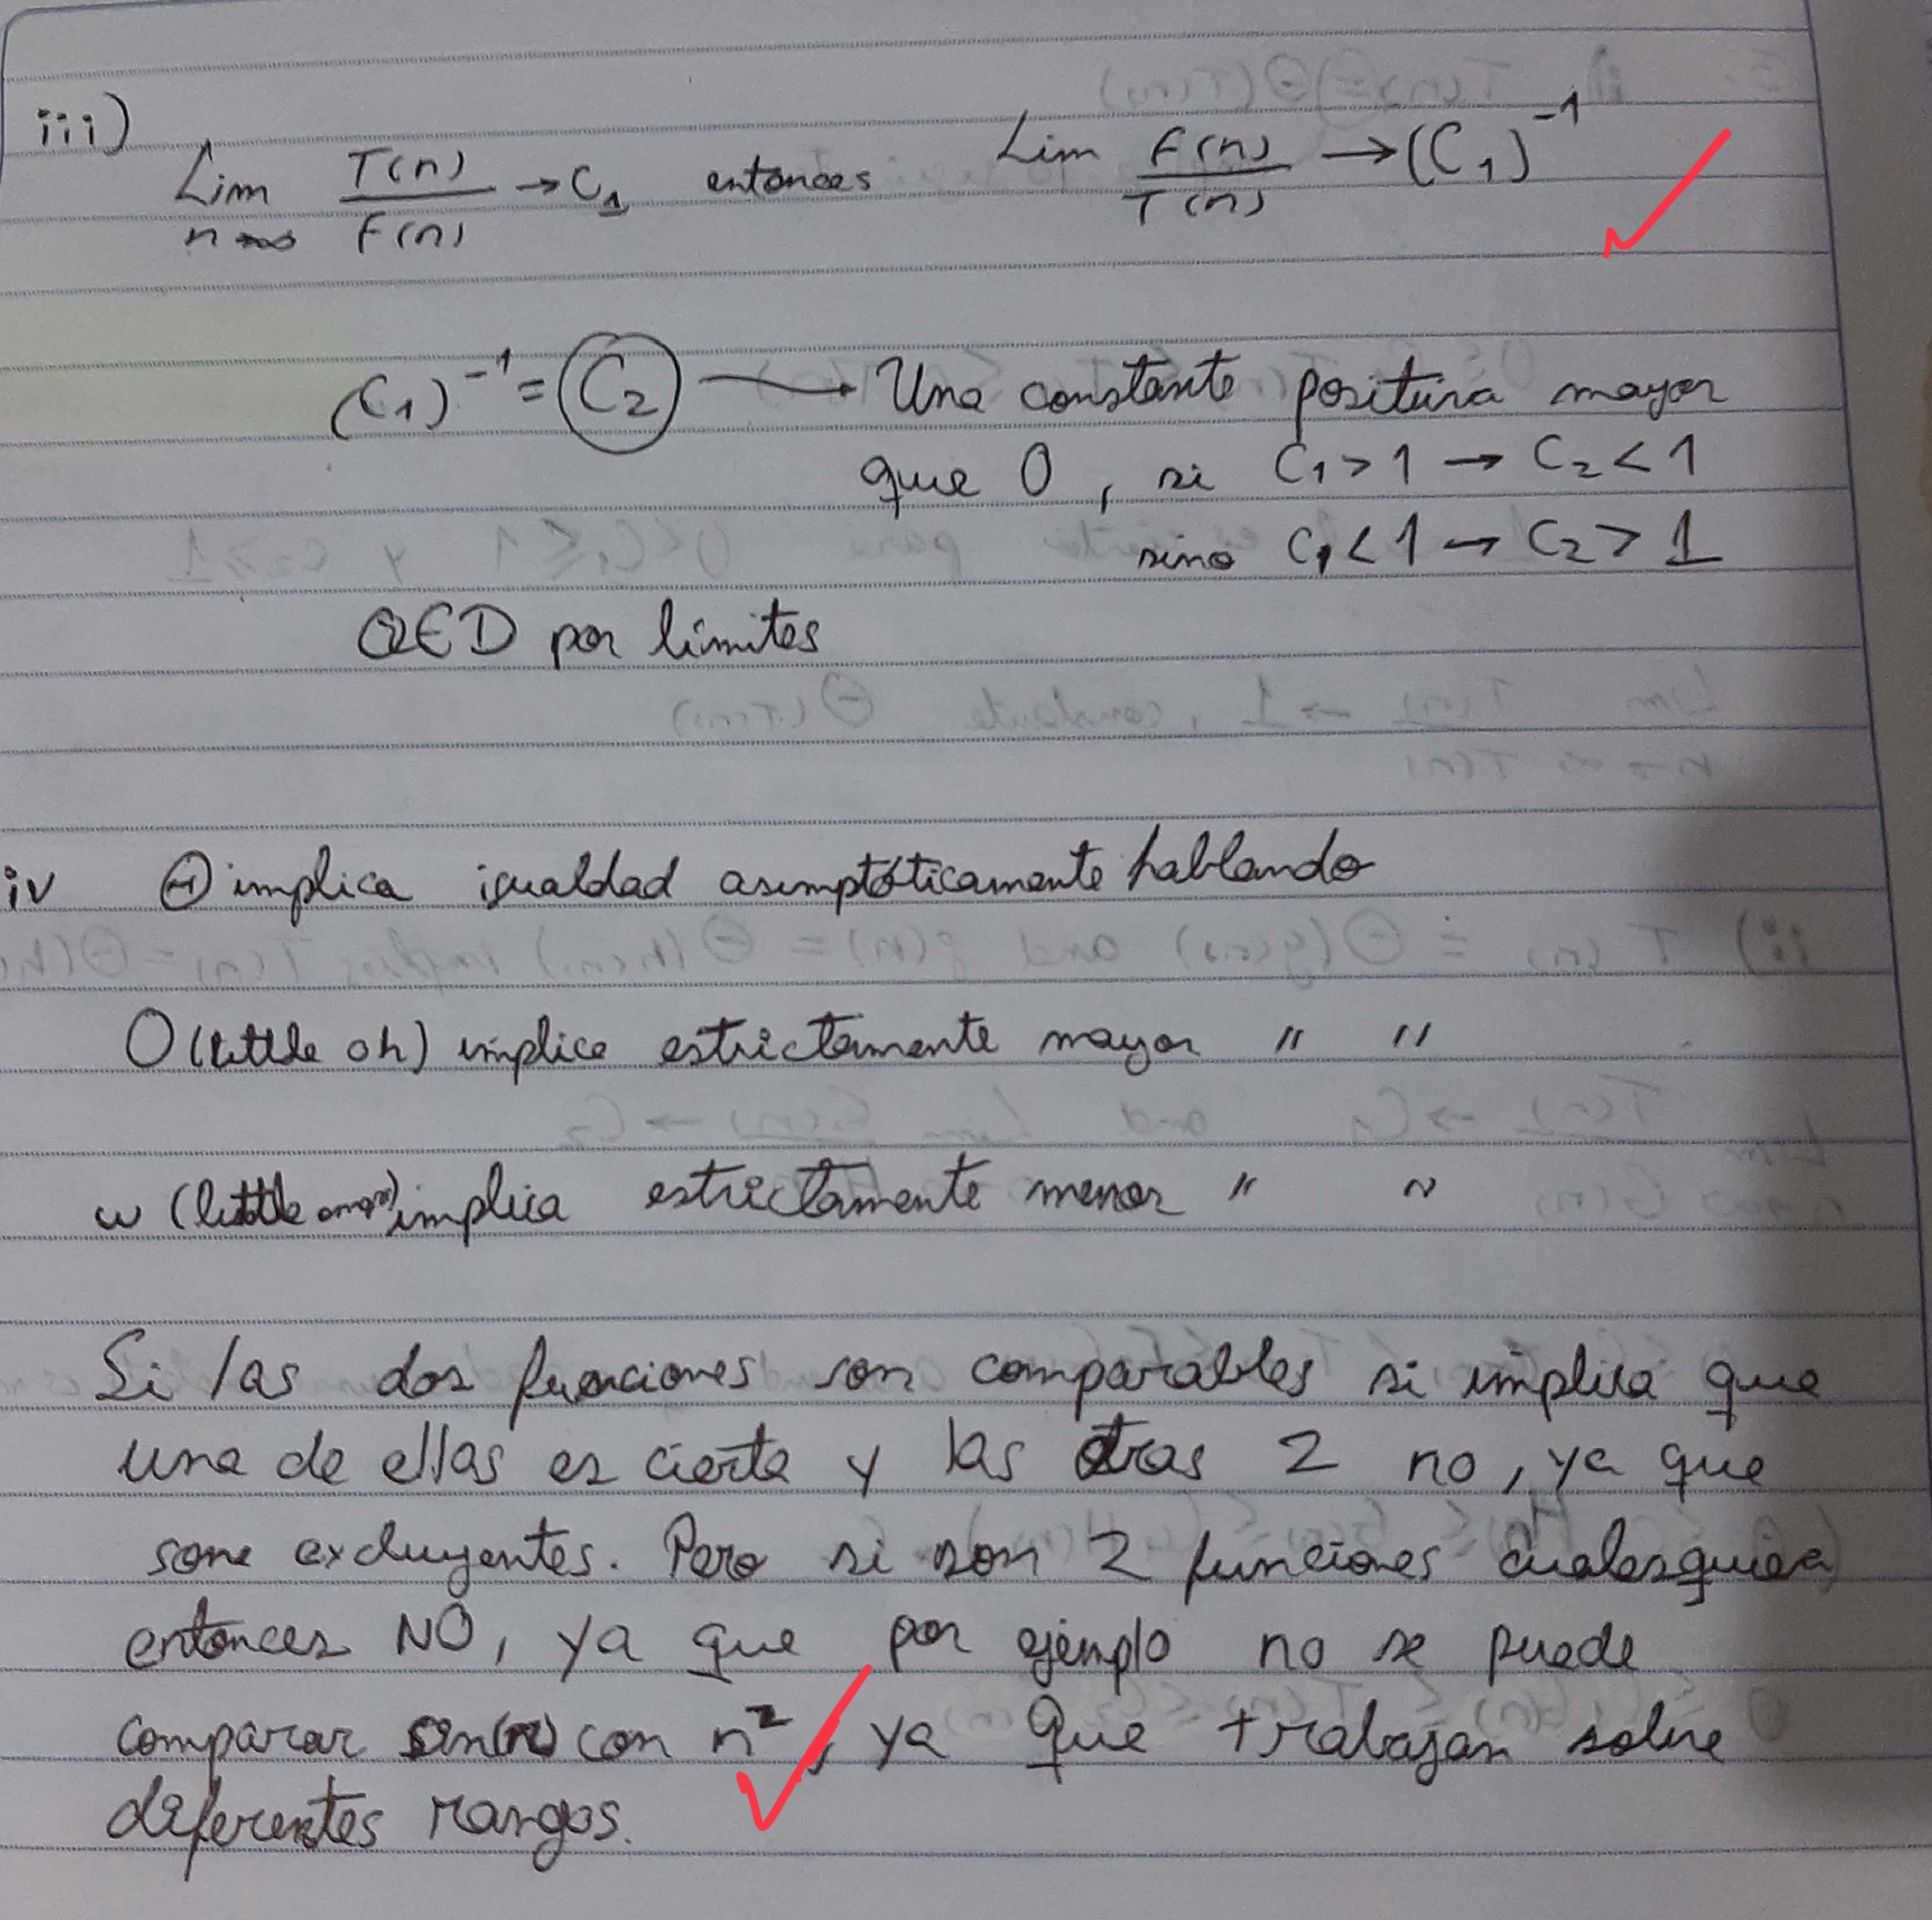 iii)
Lim n→∞ T(n)/F(n) → C₁ entonces Lim F(n)/T(n) → (C₁)⁻¹
(C₁)⁻¹ = C₂ → Una constante positiva mayor
que 0, si C₁ > 1 → C₂ < 1
sino C₁ < 1 → C₂ > 1
QED por límites
iv Θ implica igualdad asimptóticamente hablando
O (little oh) implica estrictamente mayor " "
ω (little omega) implica estrictamente menor " "
Si las dos funciones son comparables si implica que
una de ellas es cierta y las otras 2 no, ya que
son excluyentes. Pero si son 2 funciones cualesquiera
entonces NO, ya que por ejemplo no se puede
comparar sin(n) con n², ya que trabajan sobre
diferentes rangos.